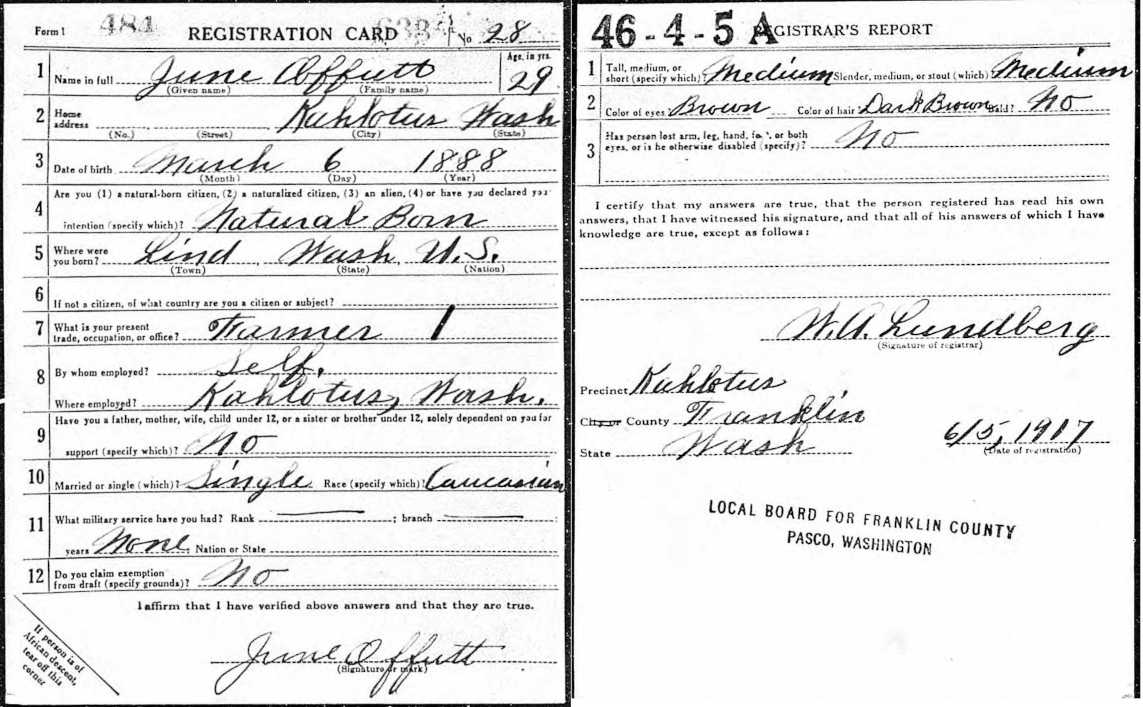 Form 1 484 REGISTRATION CARD No 28
1 Name in full June Offutt Age, in yrs. 29
(Given name) (Family name)
2 Home address Kahlotus Wash
(No.) (Street) (City) (State)
3 Date of birth March 6 1888
(Month) (Day) (Year)
4 Are you (1) a natural-born citizen, (2) a naturalized citizen, (3) an alien, (4) or have you declared your
intention (specify which)? Natural Born
5 Where were you born? Lind Wash, U.S.
(Town) (State) (Nation)
6 If not a citizen, of what country are you a citizen or subject?
7 What is your present trade, occupation, or office? Farmer 1
8 By whom employed? Self.
Where employed? Kahlotus, Wash.
9 Have you a father, mother, wife, child under 12, or a sister or brother under 12, solely dependent on you for
support (specify which)? No
10 Married or single (which)? Single Race (specify which)? Caucasian
11 What military service have you had? Rank ; branch ;
years None Nation or State
12 Do you claim exemption from draft (specify grounds)? No
I affirm that I have verified above answers and that they are true.
June Offutt
(Signature or mark)
If person is of
African descent,
tear off this
corner
46-4-5 A REGISTRAR'S REPORT
1 Tall, medium, or short (specify which)? Medium Slender, medium, or stout (which)? Medium
2 Color of eyes Brown Color of hair Dark Brown Bald? No
3 Has person lost arm, leg, hand, foot, or both eyes, or is he otherwise disabled (specify)? No
I certify that my answers are true, that the person registered has read his own
answers, that I have witnessed his signature, and that all of his answers of which I have
knowledge are true, except as follows:
W.A. Lundberg
(Signature of registrar)
Precinct Kahlotus
City or County Franklin
State Wash 6/5, 1917
(Date of registration)
LOCAL BOARD FOR FRANKLIN COUNTY
PASCO, WASHINGTON